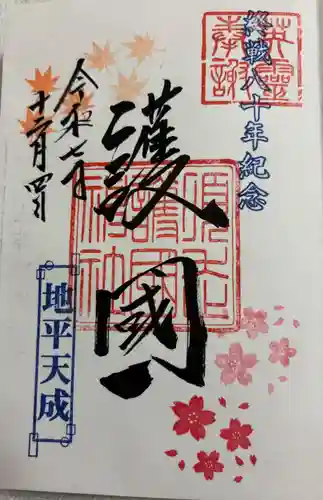 終戦八十年紀念
英霊
奉謝
護國
鹿児島
護國
神社
令和七年
十二月四日
地平天成